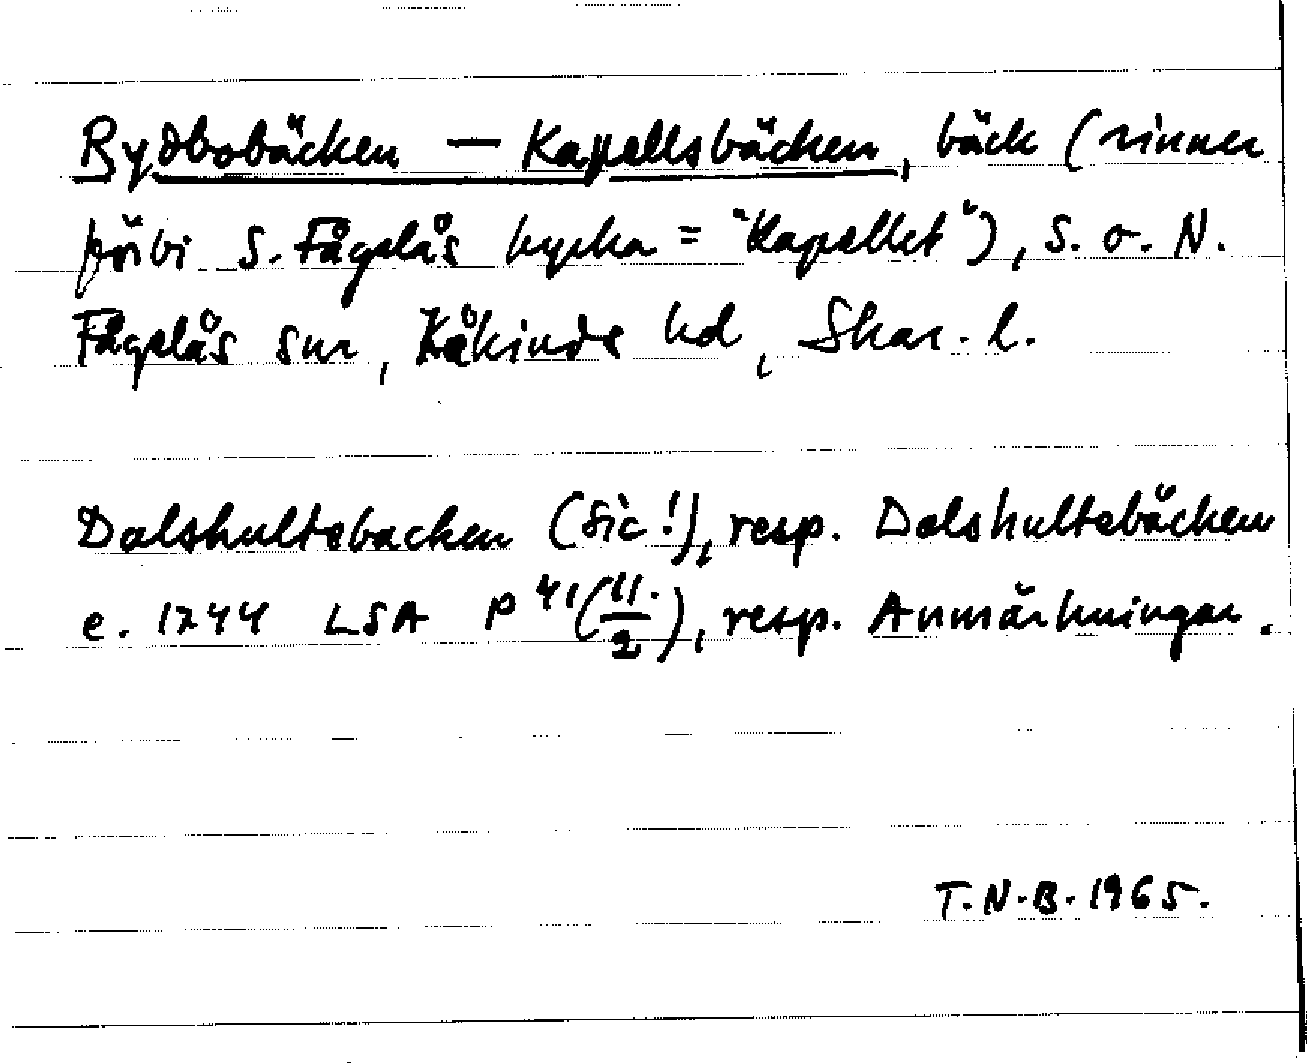 Rydbobäcken — Kapellsbäcken, bäck (rinner
förbi S. Fågelås kyrka = "Kapellet"), S. o. N.
Fågelås snr, Kåkinds hd, Skar. l.
Dalshultsbacken (sic!), resp. Dalshultsbäcken
e. 1744 LSA P 41 (11./2), resp. Anmärkningar.
T.N.B. 1965.